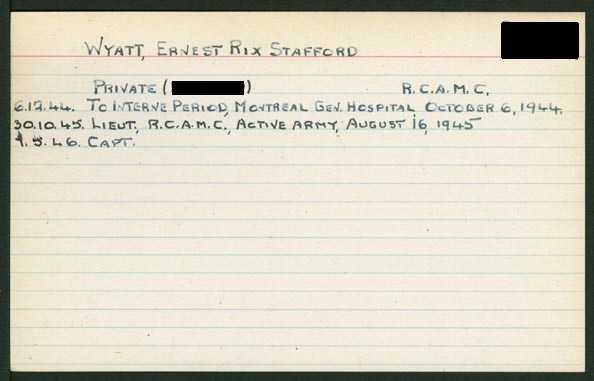 WYATT, ERNEST RIX STAFFORD
PRIVATE ( ) R.C.A.M.C.
6.12.44. TO INTERNE PERIOD, MONTREAL GEN. HOSPITAL OCTOBER 6, 1944.
30.10.45. LIEUT., R.C.A.M.C., ACTIVE ARMY, AUGUST 16, 1945
.5.46. CAPT.